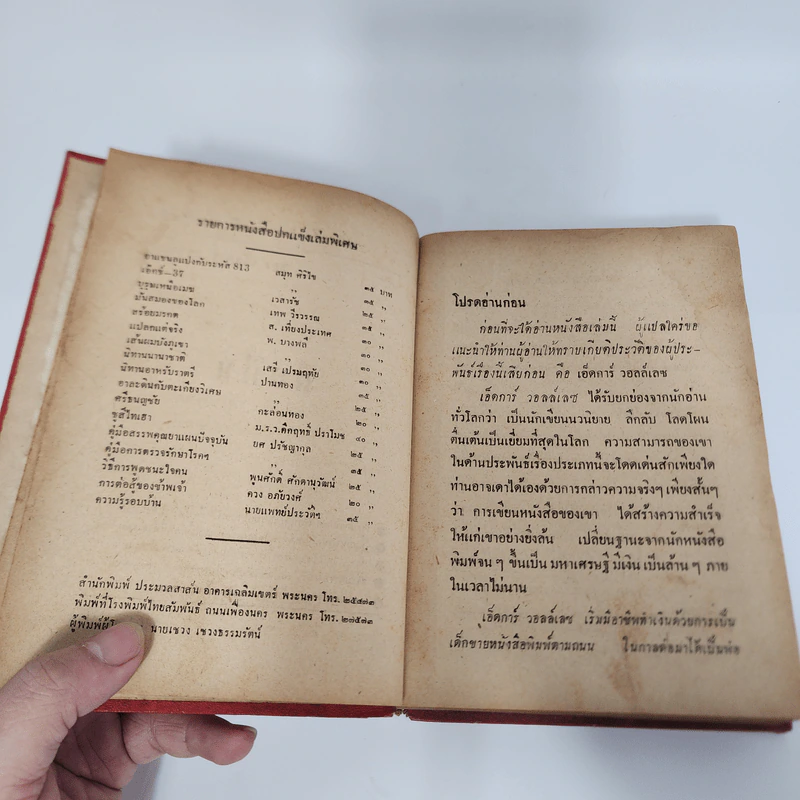 รายการหนังสือปกแข็งเล่มพิเศษ
อาแซนลูแปงกับระหัส 813 สมุท ศิริไข ๓๕ บาท
เอ๊กซ์—37 ,, ๓๕ ,,
บุรุษเหนือเมฆ เวสารัช ๓๕ ,,
มันสมองของโลก เทพ วีรวรรณ ๒๕ ,,
สร้อยมรกต ส. เที่ยงประเทศ ๓๕ ,,
แปลกแต่จริง พ. บางพลี ๓๐ ,,
เส้นผมบังภูเขา ,, ๓๐ ,,
นิทานนานาชาติ เสรี เปรมฤทัย ๓๐ ,,
นิทานอาหรับราตรี ปานทอง ๓๕ ,,
อาละดินกับตะเกียงวิเศษ ,, ๒๕ ,,
ศรีธนญชัย กะล่อนทอง ๒๐ ,,
ซูสีไทเฮา ม.ร.ว.คึกฤทธิ์ ปราโมช ๔๐ ,,
คู่มือสรรพคุณยาแผนปัจจุบัน ยศ ปรัชญากุล ๒๕ ,,
คู่มือการตรวจรักษาโรคฯ ,, ๓๕ ,,
วิธีการพูดชนะใจคน พูนศักดิ์ ศักดานุวัฒน์ ๒๐ ,,
การต่อสู้ของข้าพเจ้า ควง อภัยวงศ์ ๒๐ ,,
ความรู้รอบบ้าน นายแพทย์ประวัติฯ ๓๕ ,,
สำนักพิมพ์ ประมวลสาส์น อาคารเฉลิมเขตร์ พระนคร โทร. ๒๕๔๗๓
พิมพ์ที่โรงพิมพ์ไทยสัมพันธ์ ถนนเฟื่องนคร พระนคร โทร. ๒๗๕๗๓
ผู้พิมพ์ผู้ นายเชวง เชวงธรรมรัตน์
โปรดอ่านก่อน
ก่อนที่จะได้อ่านหนังสือเล่มนี้ ผู้แปลใคร่ขอ
แนะนำให้ท่านผู้อ่านให้ทราบเกียติประวัติของผู้ประ-
พันธ์เรื่องนี้เสียก่อน คือ เอ็ดการ์ วอลล์เลซ
เอ็ดการ์ วอลล์เลซ ได้รับยกย่องจากนักอ่าน
ทั่วโลกว่า เป็นนักเขียนนวนิยาย ลึกลับ โลดโผน
ตื่นเต้นเป็นเยี่ยมที่สุดในโลก ความสามารถของเขา
ในด้านประพันธ์เรื่องประเภทนี้จะโดดเด่นสักเพียงใด
ท่านอาจเดาได้เองด้วยการกล่าวความจริงๆ เพียงสั้นๆ
ว่า การเขียนหนังสือของเขา ได้สร้างความสำเร็จ
ให้แก่เขาอย่างยิ่งล้น เปลี่ยนฐานะจากนักหนังสือ
พิมพ์จน ๆ ขึ้นเป็น มหาเศรษฐี มีเงิน เป็นล้าน ๆ ภาย
ในเวลาไม่นาน
เอ็ดการ์ วอลล์เลซ เริ่มมีอาชีพทำเงินด้วยการเป็น
เด็กขายหนังสือพิมพ์ตามถนน ในกาลต่อมาได้เป็นพ่อ